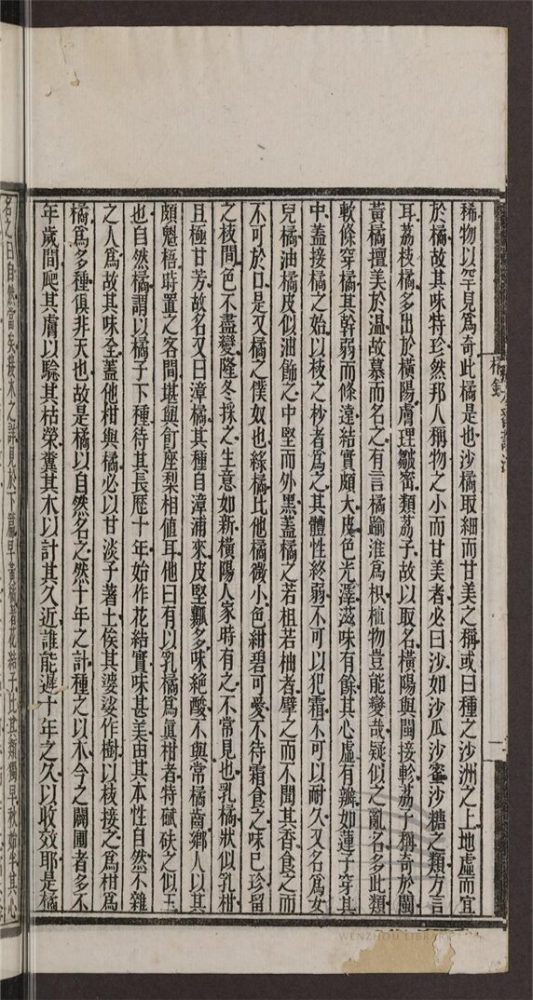 稀物以罕見爲奇此橘是也沙橘取細而甘美之稱或曰種之沙洲之上地虛而宜
於橘故其味特珍然邦人稱物之小而甘美者必曰沙如沙瓜沙蜜沙糖之類方言
耳荔枝橘多出於橫陽膚理皺密類荔子故以取名橫陽與閩接軫荔子稱奇於閩
黃橘擅美於溫故慕而名之有言橘踰淮爲枳植物豈能變哉疑似之亂名多此類
軟條穿橘其幹弱而條遠結實頗大皮色光澤滋味有餘其心虛有瓣如蓮子穿其
中蓋接橘之始以枝之杪者爲之其體性終弱不可以犯霜不可以耐久又名爲女
兒橘油橘皮似油飾之中堅而外黑蓋橘之若柤若柚者擘之而不聞其香食之而
不可於口是又橘之僕奴也綠橘比他橘微小色紺碧可愛不待霜食之味已珍留
之枝間色不盡變隆冬採之生意如新橫陽人家時有之不常見也乳橘狀似乳柑
且極甘芳故名又曰漳橘其種自漳浦來皮堅瓤多味絕酸不與常橘齒鄉人以其
頗魁梧時置之客間堪與飣座梨相值耳他曰有以乳橘爲眞柑者特碔砆之似玉
也自然橘謂以橘子下種待其長歷十年始作花結實味甚美由其本性自然不雜
之人爲故其味全蓋他柑與橘必以甘淡子著土俟其婆娑作樹以枝接之爲柑爲
橘爲多種俱非天也故是橘以自然名之然十年之計種之以木今之闢圃者多不
年歲間爬其膚以驗其枯榮糞其本以計其久近誰能遲十年之久以收效耶是橘
橘錄
二
WENZHOU LIBRARY